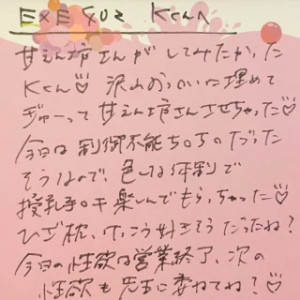 EXE 402 Kくんへ
甘えん坊さんがしてみたかった
Kくん♡ 沢山おっぱいに埋めて
ぎゅーって甘えん坊さんさせちゃった♡
今日は制御不能ち〇ちのだった
そうなので、色んな体制で
授乳手コキ楽しんでもらっちゃった♡
ひざ枕、けっこう好きそうだったね?
今日の性欲は営業終了、次の
性欲も先生に委ねてね?♡